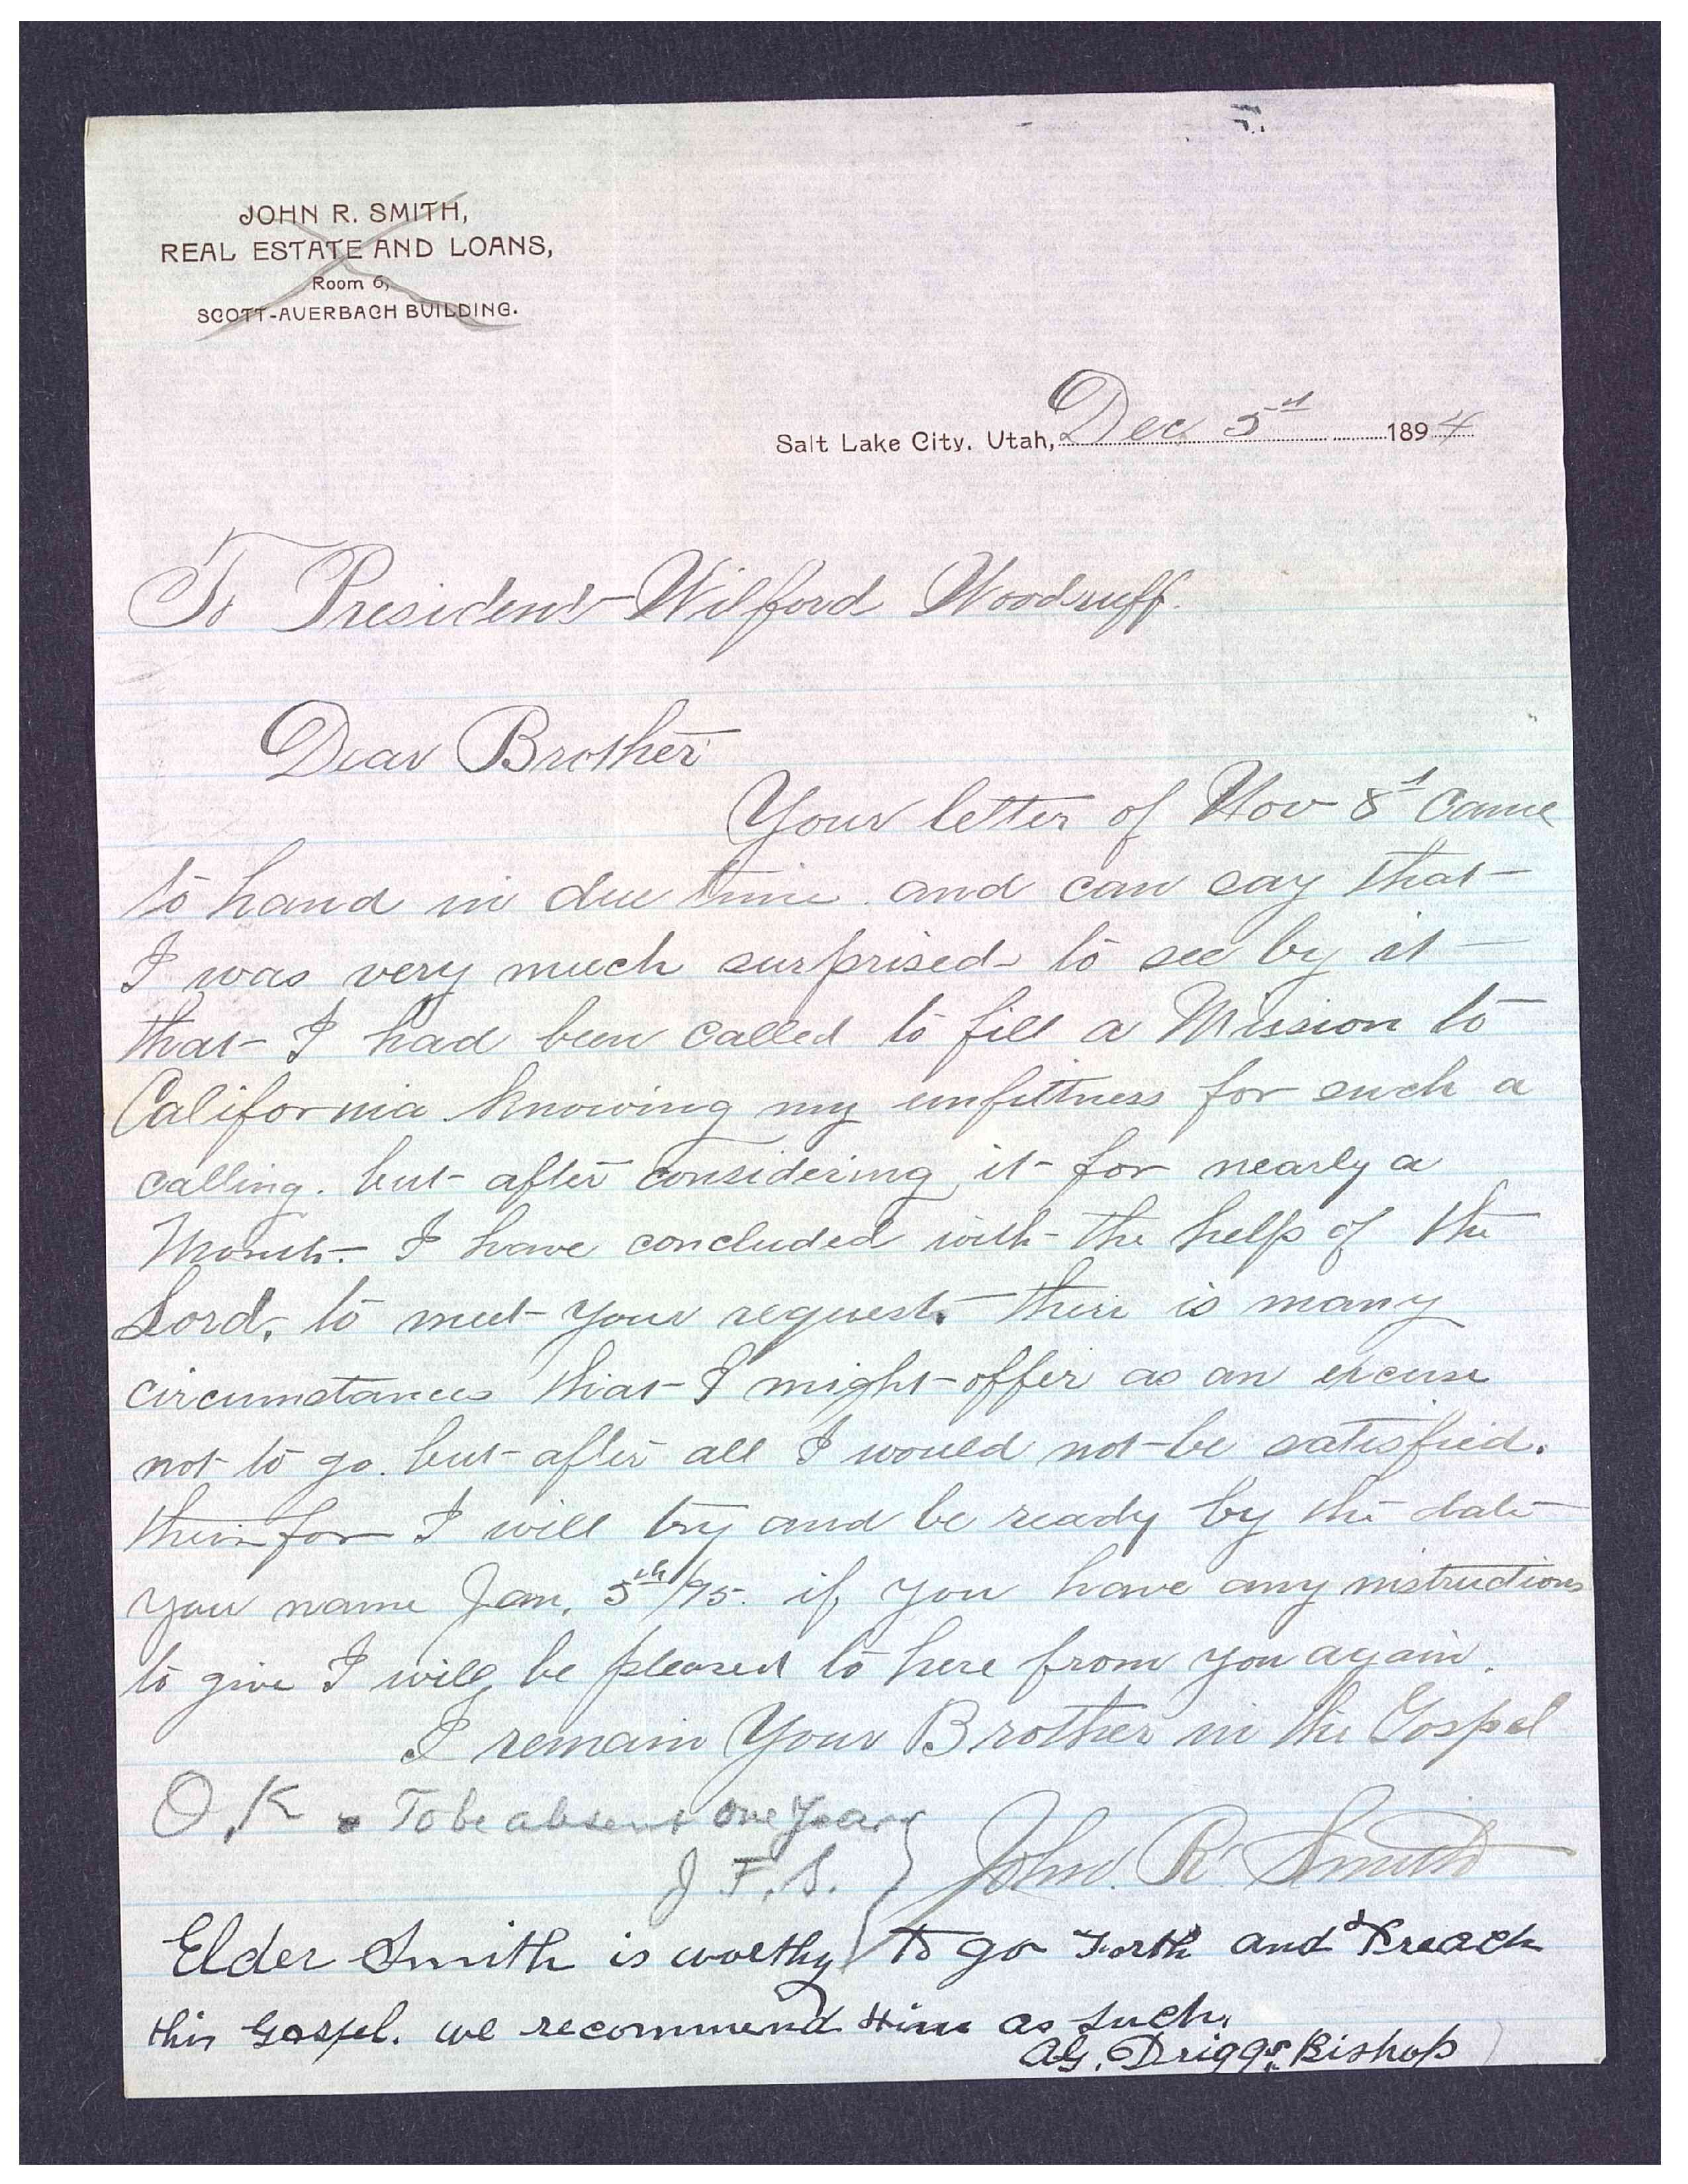 JOHN R. SMITH,
REAL ESTATE AND LOANS,
Room 6,
SCOTT-AUERBACH BUILDING.
Salt Lake City, Utah, Dec 5th 1894
To President Wilford Woodruff.
Dear Brother
Your letter of Nov 8th Came
to hand in due time. and can say that
I was very much surprised to see by it
that I had been called to fill a Mission to
California knowing my unfittness for such a
calling. but after considering it for nearly a
Month. I have concluded with the help of the
Lord, to meet your request. their is many
circumstances that I might offer as an excuse
not to go. but after all I would not be satisfied.
theirfor I will try and be ready by the date
you name Jan. 5th/95. if you have any instructions
to give I will be pleased to here from you again.
I remain Your Brother in the Gospel
John. R. Smith
O.K. To be absent One Year
J. F. S.
Elder Smith is worthy to go Forth and Preach
this Gospel. we recommend Him as such.
A.G. Driggs, Bishop